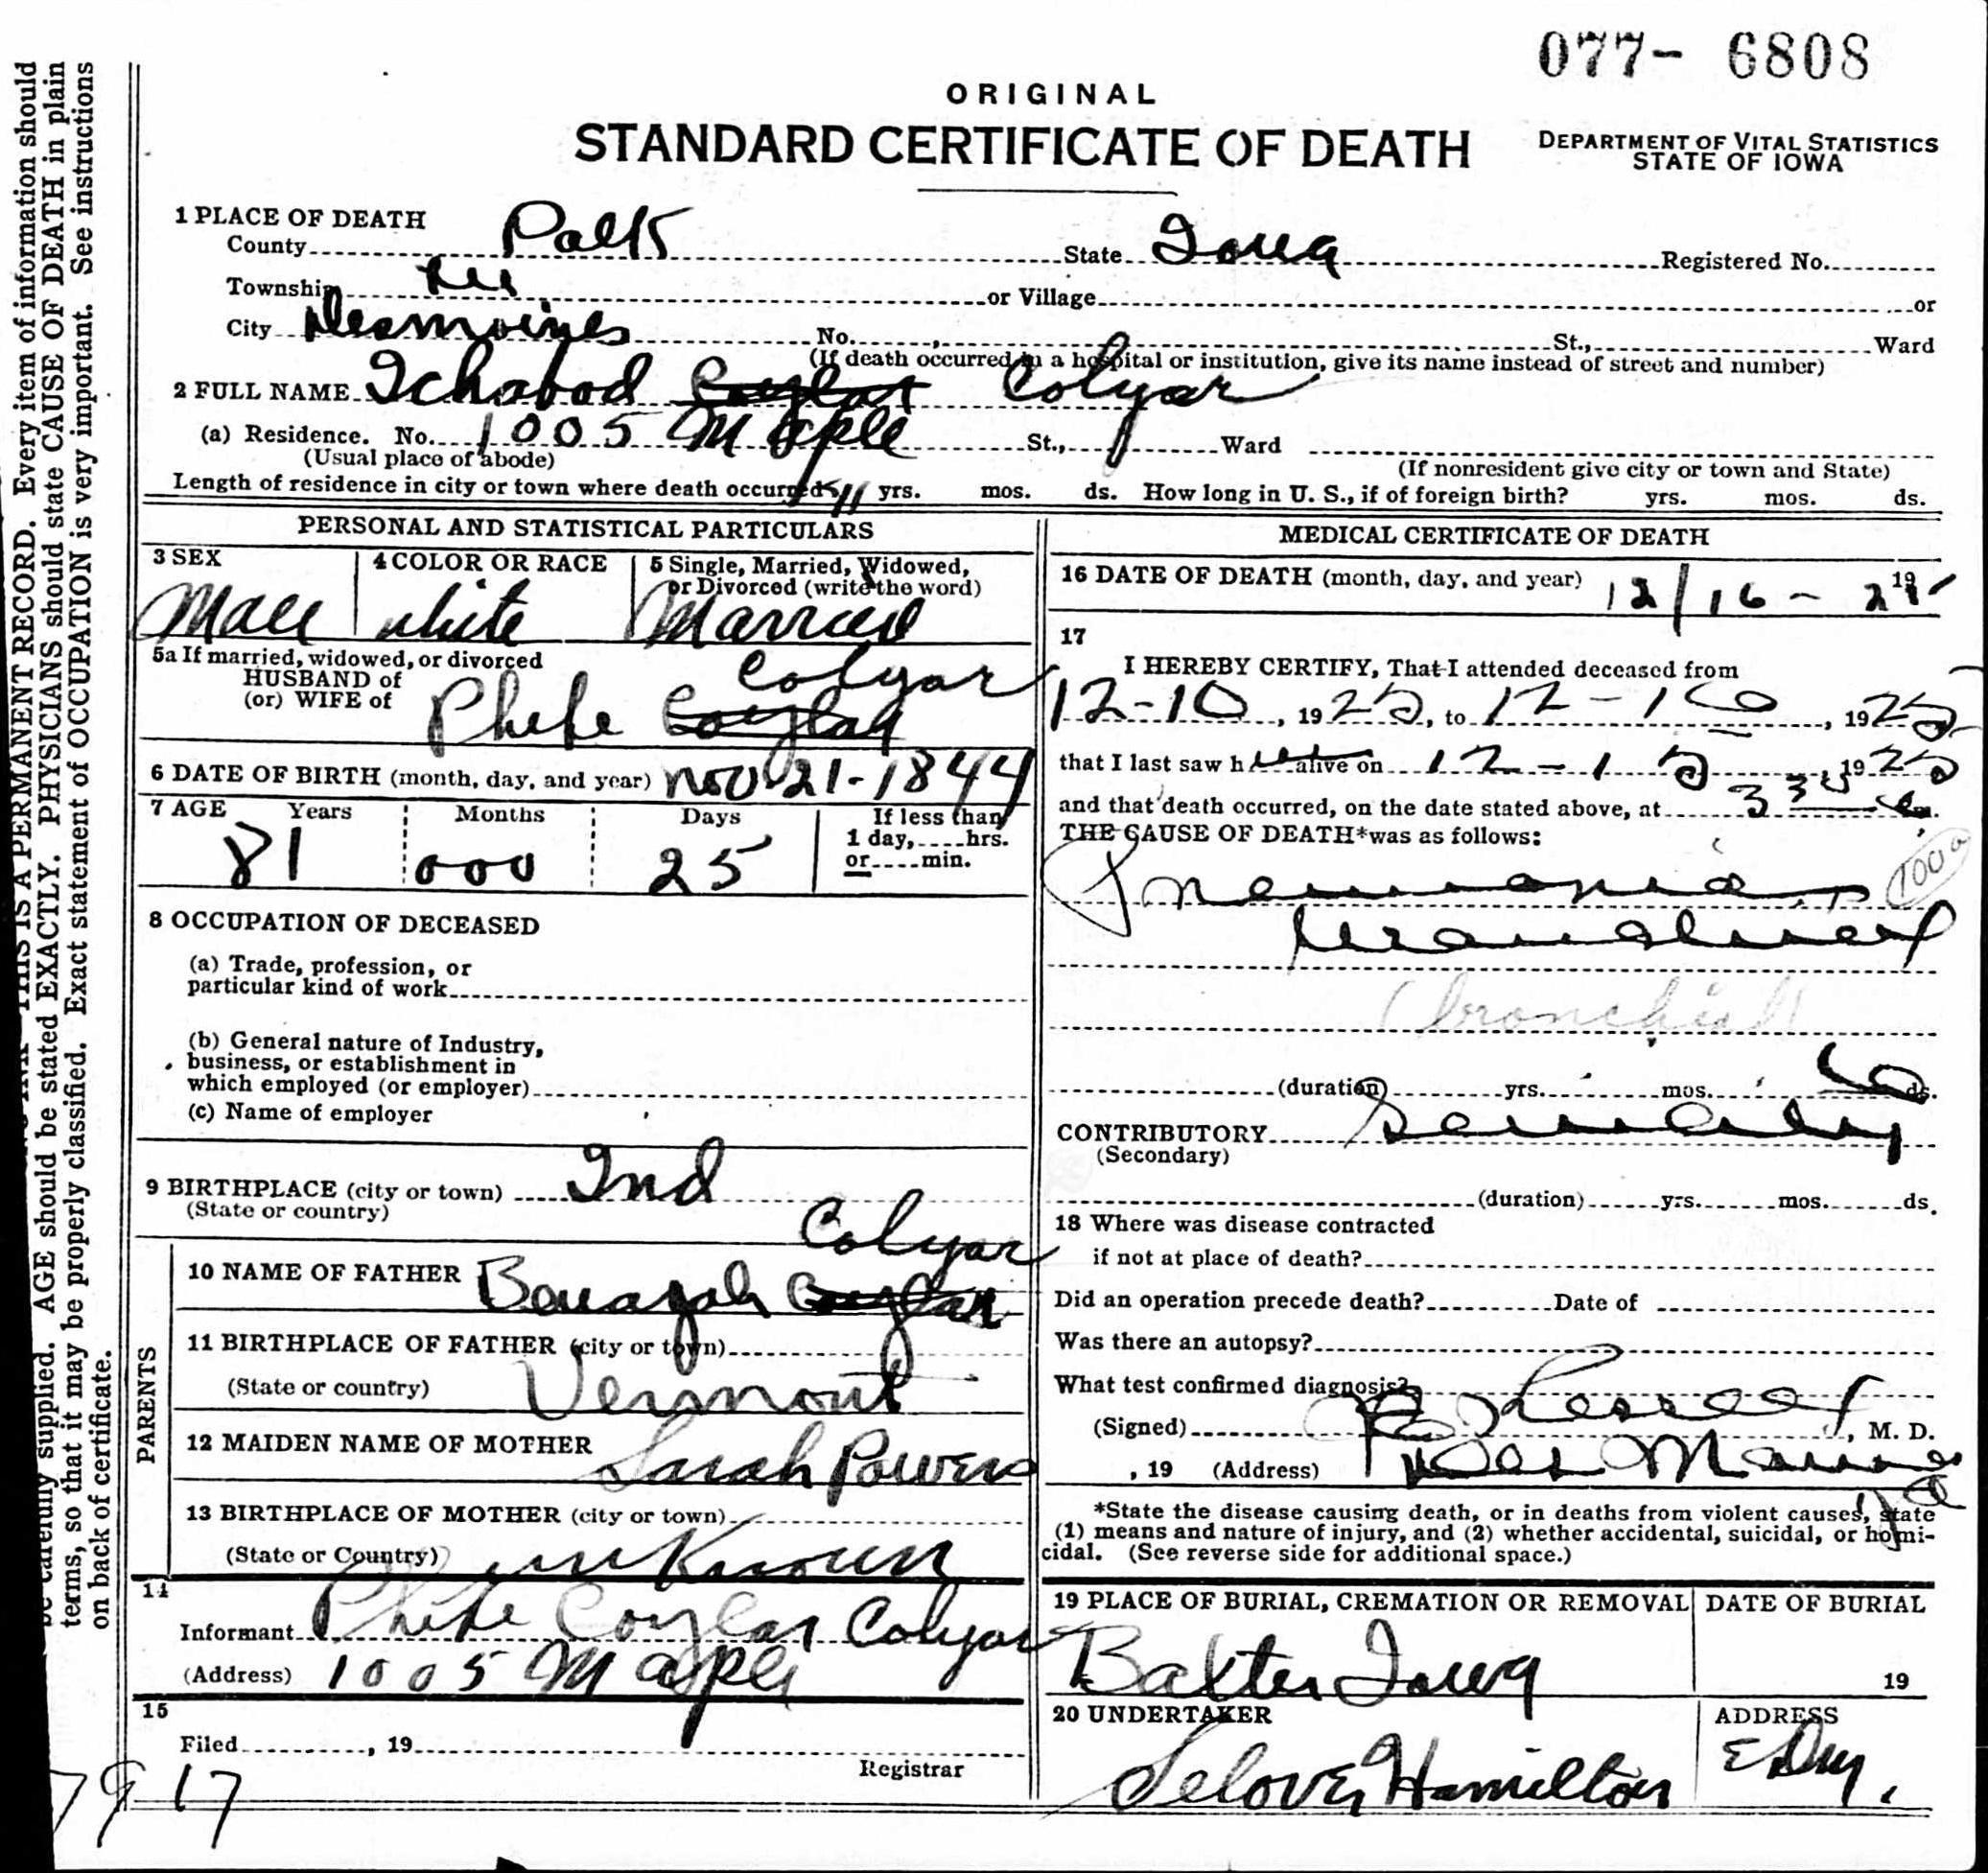 077- 6808
ORIGINAL
STANDARD CERTIFICATE OF DEATH
DEPARTMENT OF VITAL STATISTICS
STATE OF IOWA
Every item of information should
THIS IS A PERMANENT RECORD.
be carefully supplied. AGE should be stated EXACTLY. PHYSICIANS should state CAUSE OF DEATH in plain
terms, so that it may be properly classified. Exact statement of OCCUPATION is very important. See instructions
on back of certificate.
1 PLACE OF DEATH
County Polk State Iowa Registered No.
Township or Village or
City Desmoines No. St., Ward
(If death occurred in a hospital or institution, give its name instead of street and number)
2 FULL NAME Ichabod Coylar Colyar
(a) Residence. No. 1005 Maple St., Ward
(Usual place of abode) (If nonresident give city or town and State)
Length of residence in city or town where death occurred yrs. mos. ds. How long in U. S., if of foreign birth? yrs. mos. ds.
PERSONAL AND STATISTICAL PARTICULARS
3 SEX
Male
4 COLOR OR RACE
white
5 Single, Married, Widowed,
or Divorced (write the word)
Married
5a If married, widowed, or divorced
HUSBAND of
(or) WIFE of
Colyar
Phebe Coylar
6 DATE OF BIRTH (month, day, and year) Nov 21-1844
7 AGE Years Months Days If less than
1 day, hrs.
or min.
81 000 25
8 OCCUPATION OF DECEASED
(a) Trade, profession, or
particular kind of work
(b) General nature of Industry,
business, or establishment in
which employed (or employer)
(c) Name of employer
9 BIRTHPLACE (city or town) Ind
(State or country)
PARENTS
Colyar
10 NAME OF FATHER Benajah Coylar
11 BIRTHPLACE OF FATHER (city or town)
(State or country) Vermont
12 MAIDEN NAME OF MOTHER Sarah Powers
13 BIRTHPLACE OF MOTHER (city or town)
(State or Country) unknown
14
Informant Phebe Coylar Colyar
(Address) 1005 Maple
15
Filed , 19
Registrar
79 17
MEDICAL CERTIFICATE OF DEATH
16 DATE OF DEATH (month, day, and year) 12/16- 19 25
17
I HEREBY CERTIFY, That I attended deceased from
12-10, 1925, to 12-16, 1925
that I last saw h alive on 12-15, 1925
and that death occurred, on the date stated above, at 3 30
THE CAUSE OF DEATH* was as follows:
100a
Pneumonia
Bronchial
(bronchial)
(duration) yrs. mos. 6 ds.
CONTRIBUTORY Senility
(Secondary)
(duration) yrs. mos. ds.
18 Where was disease contracted
if not at place of death?
Did an operation precede death? Date of
Was there an autopsy?
What test confirmed diagnosis?
(Signed) , M. D.
, 19 (Address) Des Moines Ia
*State the disease causing death, or in deaths from violent causes, state
(1) means and nature of injury, and (2) whether accidental, suicidal, or homi-
cidal. (See reverse side for additional space.)
19 PLACE OF BURIAL, CREMATION OR REMOVAL
Baxter Iowa
DATE OF BURIAL
19
20 UNDERTAKER
Selover Hamilton
ADDRESS
E Dm.